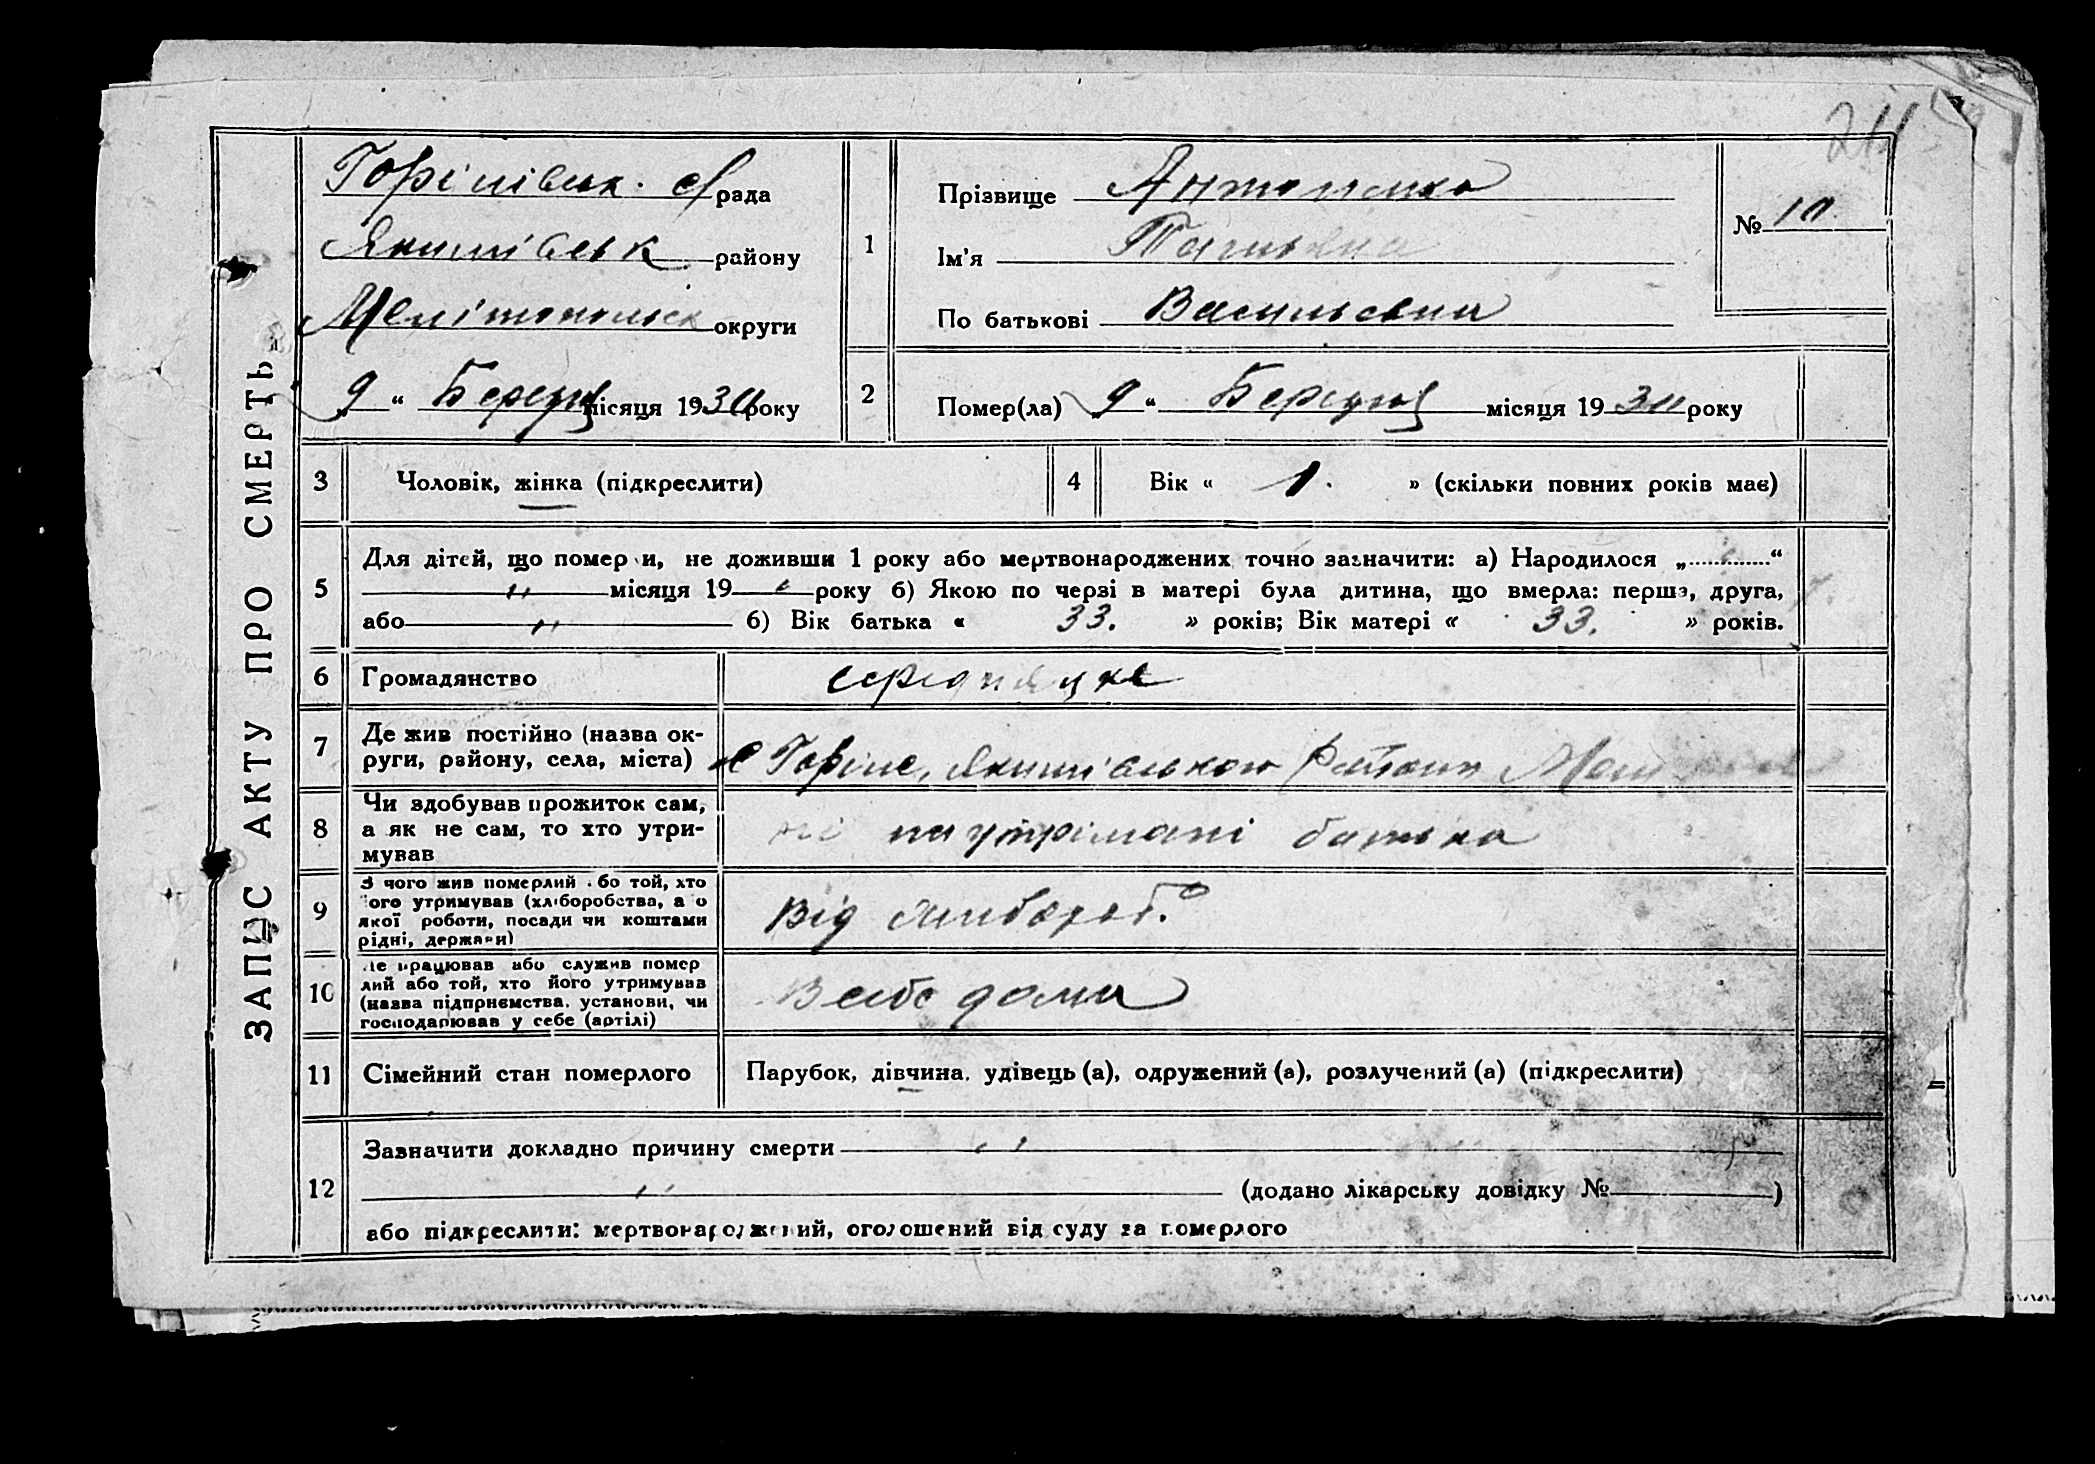 ЗАПИС АКТУ ПРО СМЕРТЬ
Горілівськ. с/рада
Якимівськ району
Мелітопольськ округи
9 “ Березня місяця 1930 року
1
Прізвище Антоненко
Ім'я Татьяна
По батькові Васильевна
№ 10
2
Помер(ла) „ 9 “ Березня місяця 1930 року
3 Чоловік, жінка (підкреслити)
4 Вік « 1. » (скільки повних років має)
5 Для дітей, що померли, не доживши 1 року або мертвонароджених точно зазначити: а) Народилося „ “
„ місяця 19 року б) Якою по черзі в матері була дитина, що вмерла: перша, друга,
або „ б) Вік батька « 33. » років; Вік матері « 33. » років.
6 Громадянство середняцке
7 Де жив постійно (назва округи, району, села, міста) с Якимівського району
8 Чи здобував прожиток сам, а як не сам, то хто утримував
на утрімані батька
9 З чого жив померлий або той, хто його утримував (хліборобства, або якої роботи, посади чи коштами рідні, держави)
Від хлибороб.
10 Де працював або служив померлий або той, хто його утримував (назва підприємства, установи, чи господарював у себе (артілі)
В себе дома
11 Сімейний стан померлого Парубок, дівчина, удівець (а), одружений (а), розлучений (а) (підкреслити)
12 Зазначити докладно причину смерти „
„ (додано лікарську довідку № )
або підкреслити: мертвонароджений, оголошений від суду за померлого